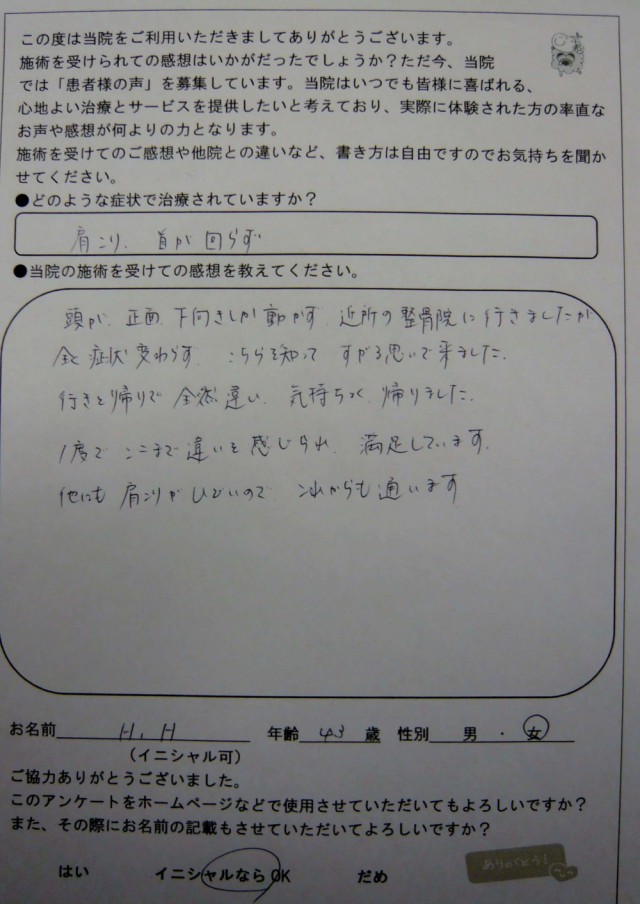 この度は当院をご利用いただきましてありがとうございます。
施術を受けられての感想はいかがだったでしょうか？ただ今、当院
では「患者様の声」を募集しています。当院はいつでも皆様に喜ばれる、
心地よい治療とサービスを提供したいと考えており、実際に体験された方の率直な
お声や感想が何よりの力となります。
施術を受けてのご感想や他院との違いなど、書き方は自由ですのでお気持ちを聞か
せてください。
●どのような症状で治療されていますか？
肩こり、首が回らず
●当院の施術を受けての感想を教えてください。
頭が、正面、下向きしか動かず、近所の整骨院に行きましたが
全く症状変わらず、こちらを知って すがる思いで来ました。
行きと帰りで 全然違い、気持ちよく、帰りました。
1度で ここまで違いを感じられ、満足しています。
他にも 肩こりがひどいので これからも通います
お名前 H.H 年齢 43 歳 性別 男 ・ 女
（イニシャル可）
ご協力ありがとうございました。
このアンケートをホームページなどで使用させていただいてもよろしいですか？
また、その際にお名前の記載もさせていただいてよろしいですか？
はい イニシャルならOK だめ
ありがとう！